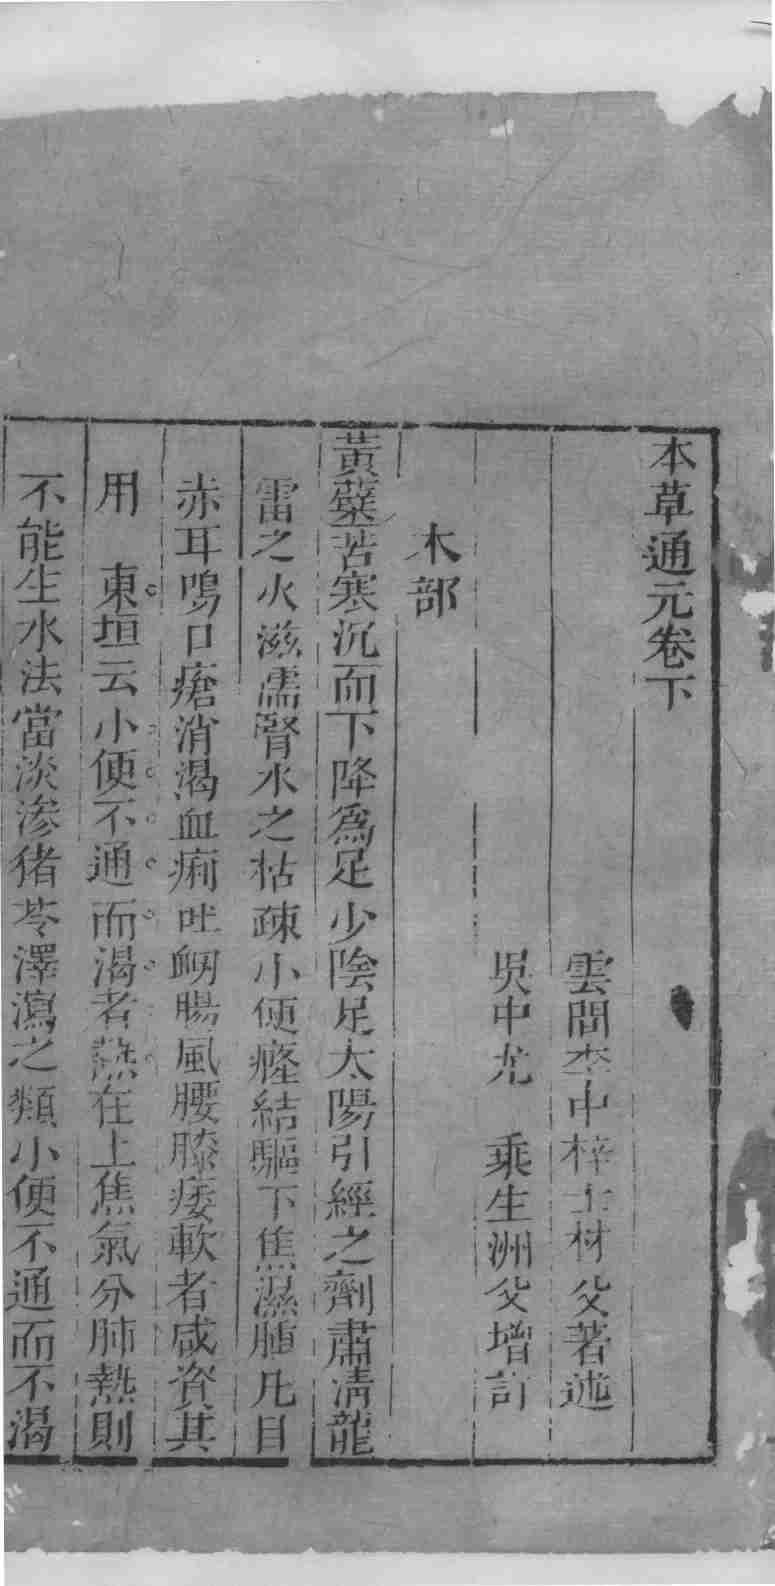 本草通元卷下
雲間李中梓士材父著述
吳中尤　乘生洲父增訂
木部
黃蘗苦寒沉而下降爲足少陰足太陽引經之劑肅清龍
雷之火滋濡腎水之枯疎小便癃結驅下焦濕腫凡目
赤耳鳴口瘡消渴血痢吐衂腸風腰膝痿軟者咸資其
用　東垣云小便不通而渴者熱在上焦氣分肺熱則
不能生水法當淡滲猪苓澤瀉之類小便不通而不渴